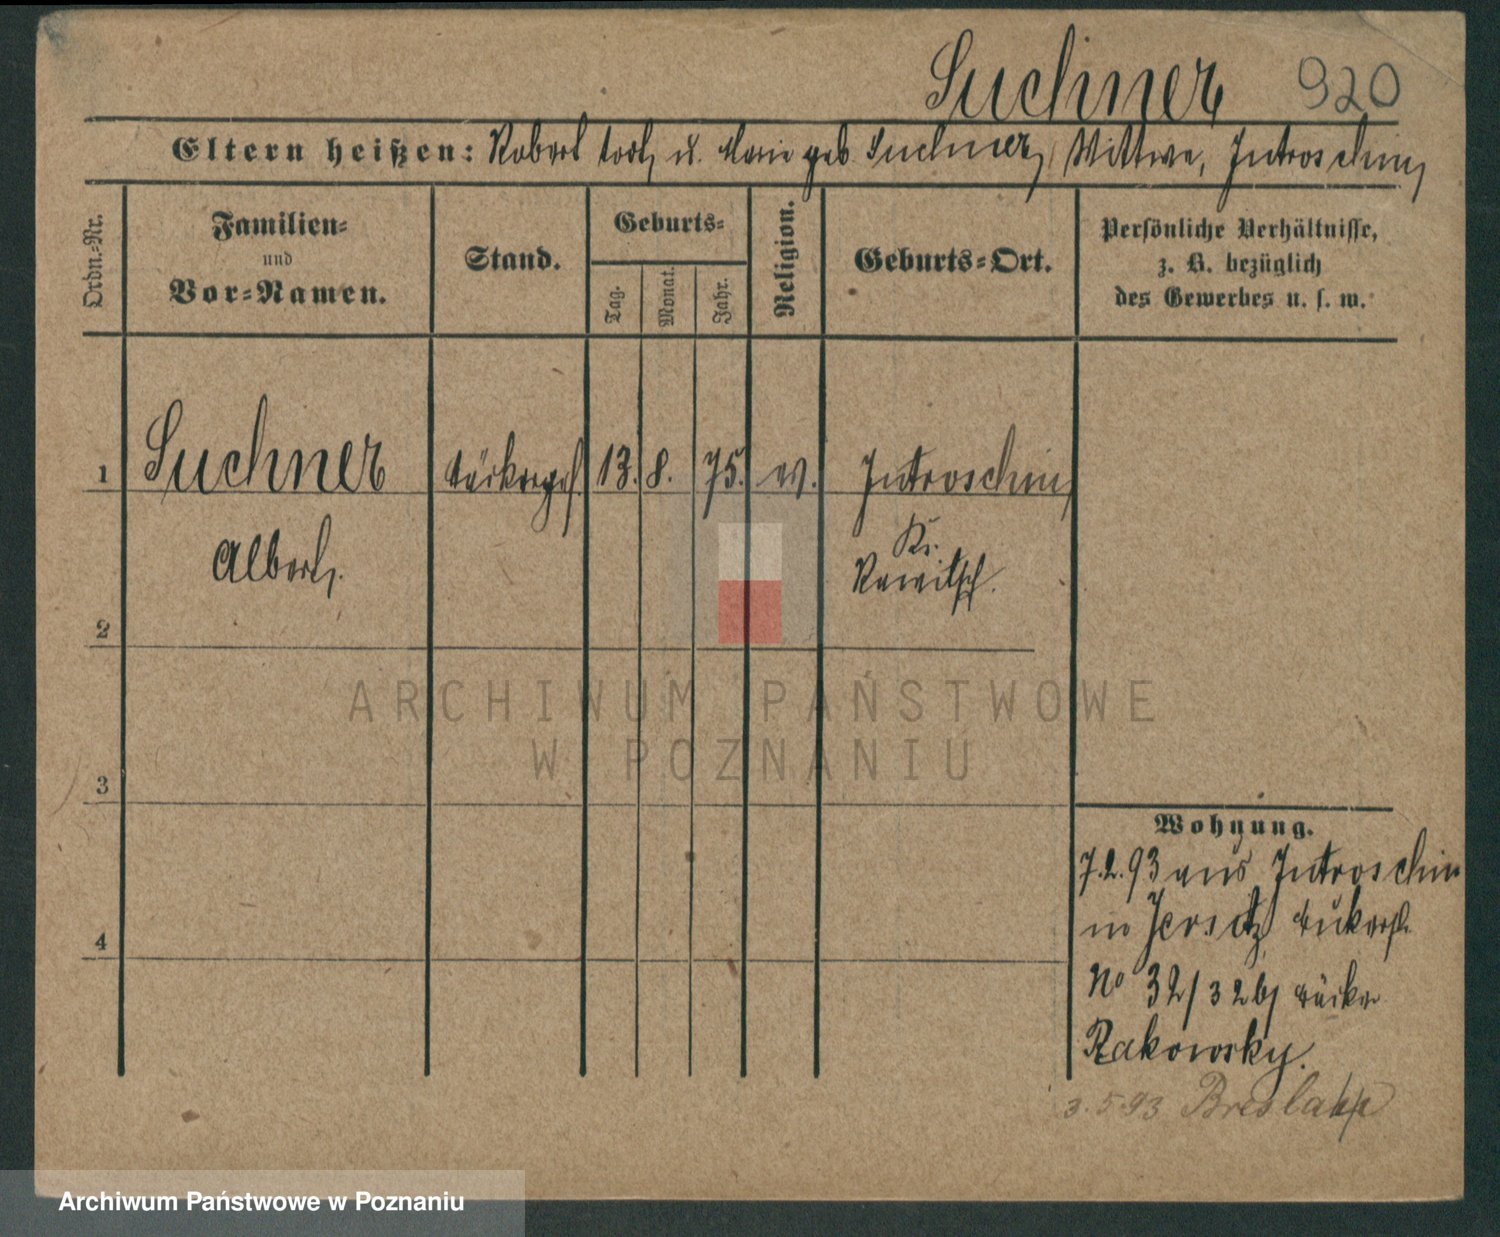 Suchner 920
Eltern heißen: Robert todt, u. Marie geb. Suchner, Wittwe, Jutroschin,
Ordn.-Nr.
Familien-
und
Vor-Namen.
Stand.
Geburts-
Tag.
Monat.
Jahr.
Religion.
Geburts-Ort.
Persönliche Verhältnisse,
z. B. bezüglich
des Gewerbes u. s. w.
1 Suchner Bäckerges. 13. 8. 75. ev. Jutroschin,
Albert.
Kr.
Rawitsch.
2
3
4
Wohnung.
7.2.93 aus Jutroschin
in Jersitz
No 32/32b, Bäcker
Rakowsky.
3.5.93 Breslau
ARCHIWUM PAŃSTWOWE
W POZNANIU
Archiwum Państwowe w Poznaniu